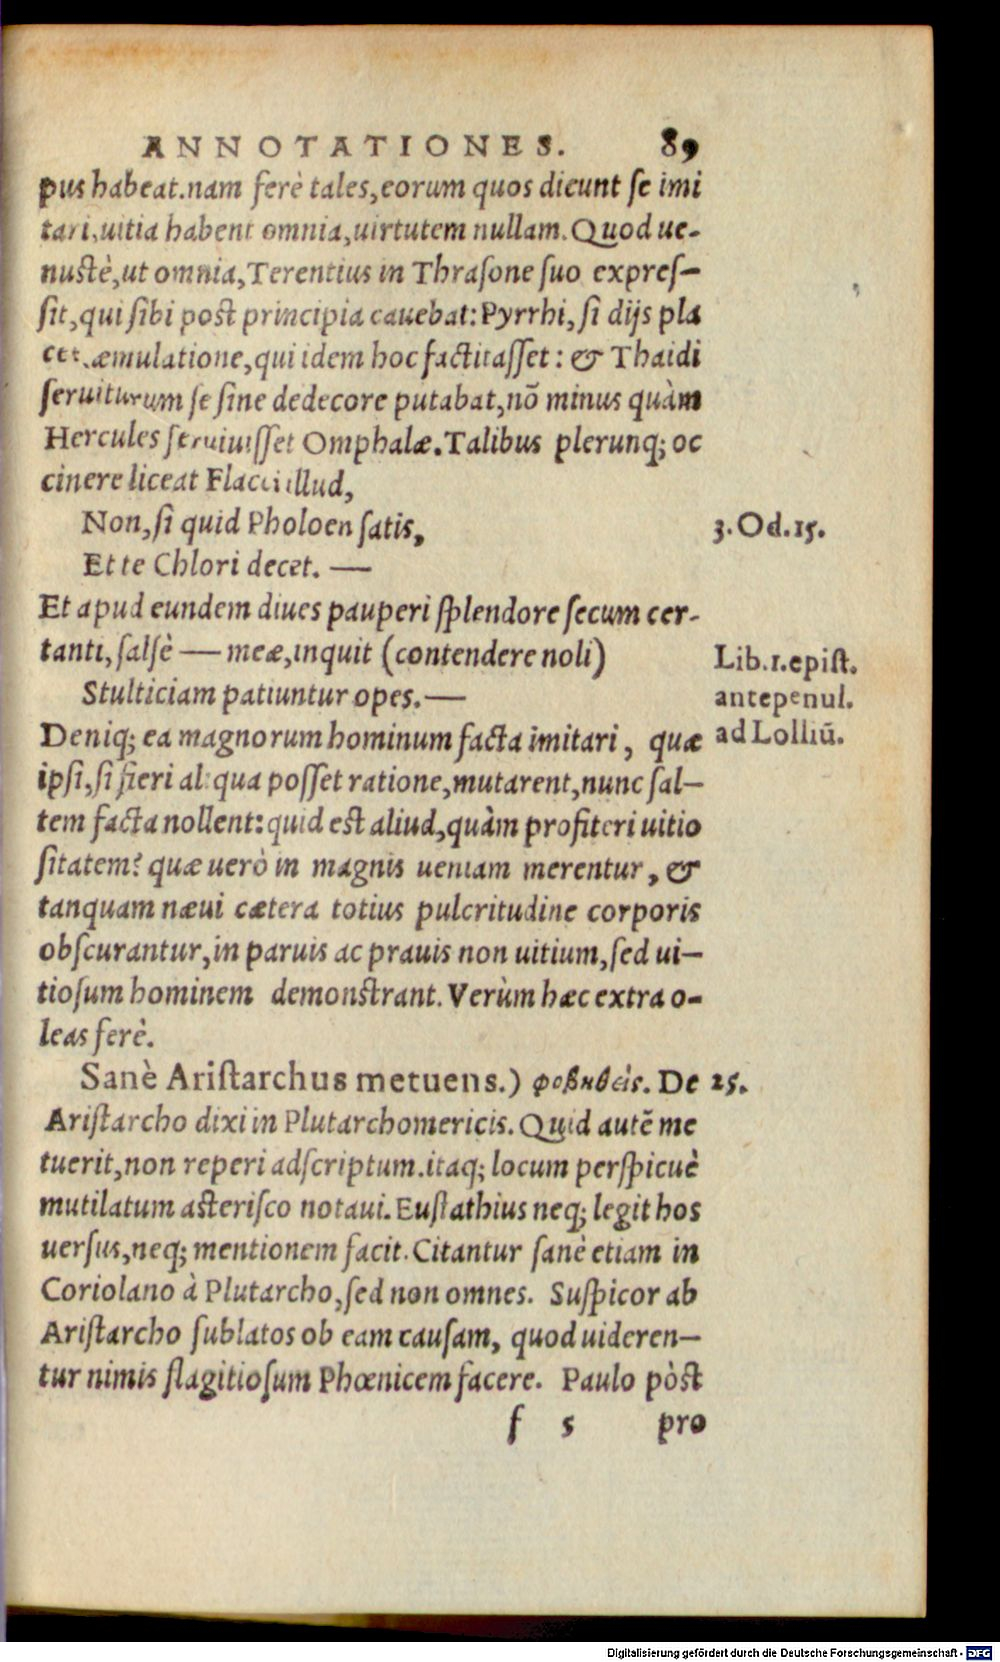 ANNOTATIONES. 89
pus habeat. nam ferè tales, eorum quos dicunt se imi
tari, uitia habent omnia, uirtutem nullam. Quod ue-
nustè, ut omnia, Terentius in Thrasone suo expres-
sit, qui sibi post principia cauebat: Pyrrhi, si dijs pla
cet, æmulatione, qui idem hoc factitasset: & Thaidi
seruiturum se sine dedecore putabat, nõ minus quàm
Hercules seruiuisset Omphalæ. Talibus plerunq; oc
cinere liceat Flacci illud,
Non, si quid Pholoen satis, 3. Od. 15.
Et te Chlori decet. —
Et apud eundem diues pauperi splendore secum cer-
tanti, salsè — meæ, inquit (contendere noli) Lib. 1. epist.
Stulticiam patiuntur opes. — antepenul.
Deniq; ea magnorum hominum facta imitari, quæ ad Lolliũ.
ipsi, si fieri aliqua posset ratione, mutarent, nunc sal-
tem facta nollent: quid est aliud, quàm profiteri uitio
sitatem? quæ uerò in magnis ueniam merentur, &
tanquam næui cætera totius pulcritudine corporis
obscurantur, in paruis ac prauis non uitium, sed ui-
tiosum hominem demonstrant. Verùm hæc extra o-
leas ferè.
Sanè Aristarchus metuens.) φοβηθείς. De 25.
Aristarcho dixi in Plutarchomericis. Quid autẽ me
tuerit, non reperi adscriptum. itaq; locum perspicuè
mutilatum asterisco notaui. Eustathius neq; legit hos
uersus, neq; mentionem facit. Citantur sanè etiam in
Coriolano à Plutarcho, sed non omnes. Suspicor ab
Aristarcho sublatos ob eam causam, quod uideren-
tur nimis flagitiosum Phœnicem facere. Paulo pòst
f 5 pro
Digitalisierung gefördert durch die Deutsche Forschungsgemeinschaft - DFG